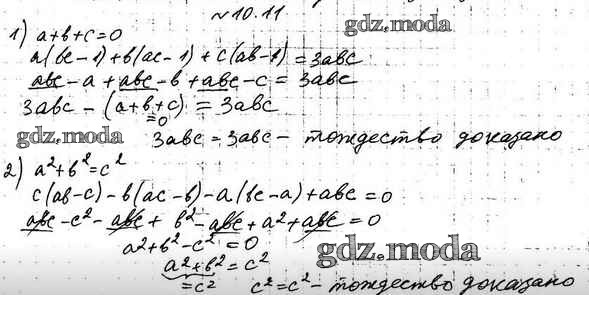 №10.11
1) a+b+c=0
gdz.moda
a(bc-1)+b(ac-1)+c(ab-1)=3abc
abc-a+abc-b+abc-c=3abc
3abc-(a+b+c)=3abc
=0
gdz.moda
3abc=3abc- тождество доказано
2) a²+b²=c²
c(ab-c)-b(ac-b)-a(bc-a)+abc=0
abc-c²-abc+b²-abc+a²+abc=0
a²+b²-c²=0
gdz.moda
a²+b²=c²
=c² c²=c²- тождество доказано